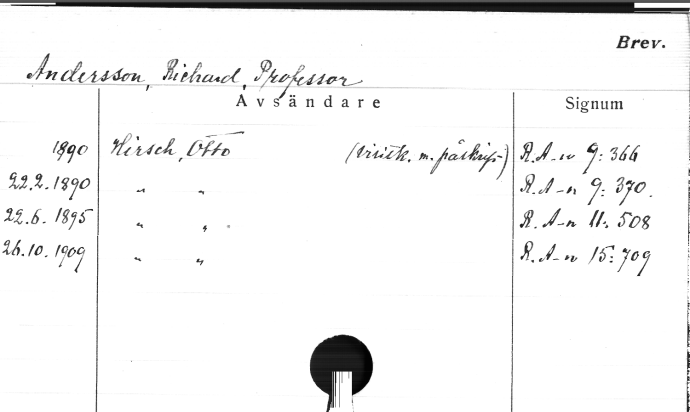 Brev.
Andersson, Richard, Professor
Avsändare Signum
1890 Hirsch, Otto (visitk. m. påskrift) R.A-n 9:366
22.2.1890 " " R.A-n 9:370.
22.6.1895 " " R.A-n 11:508
26.10.1909 " " R.A-n 15:709